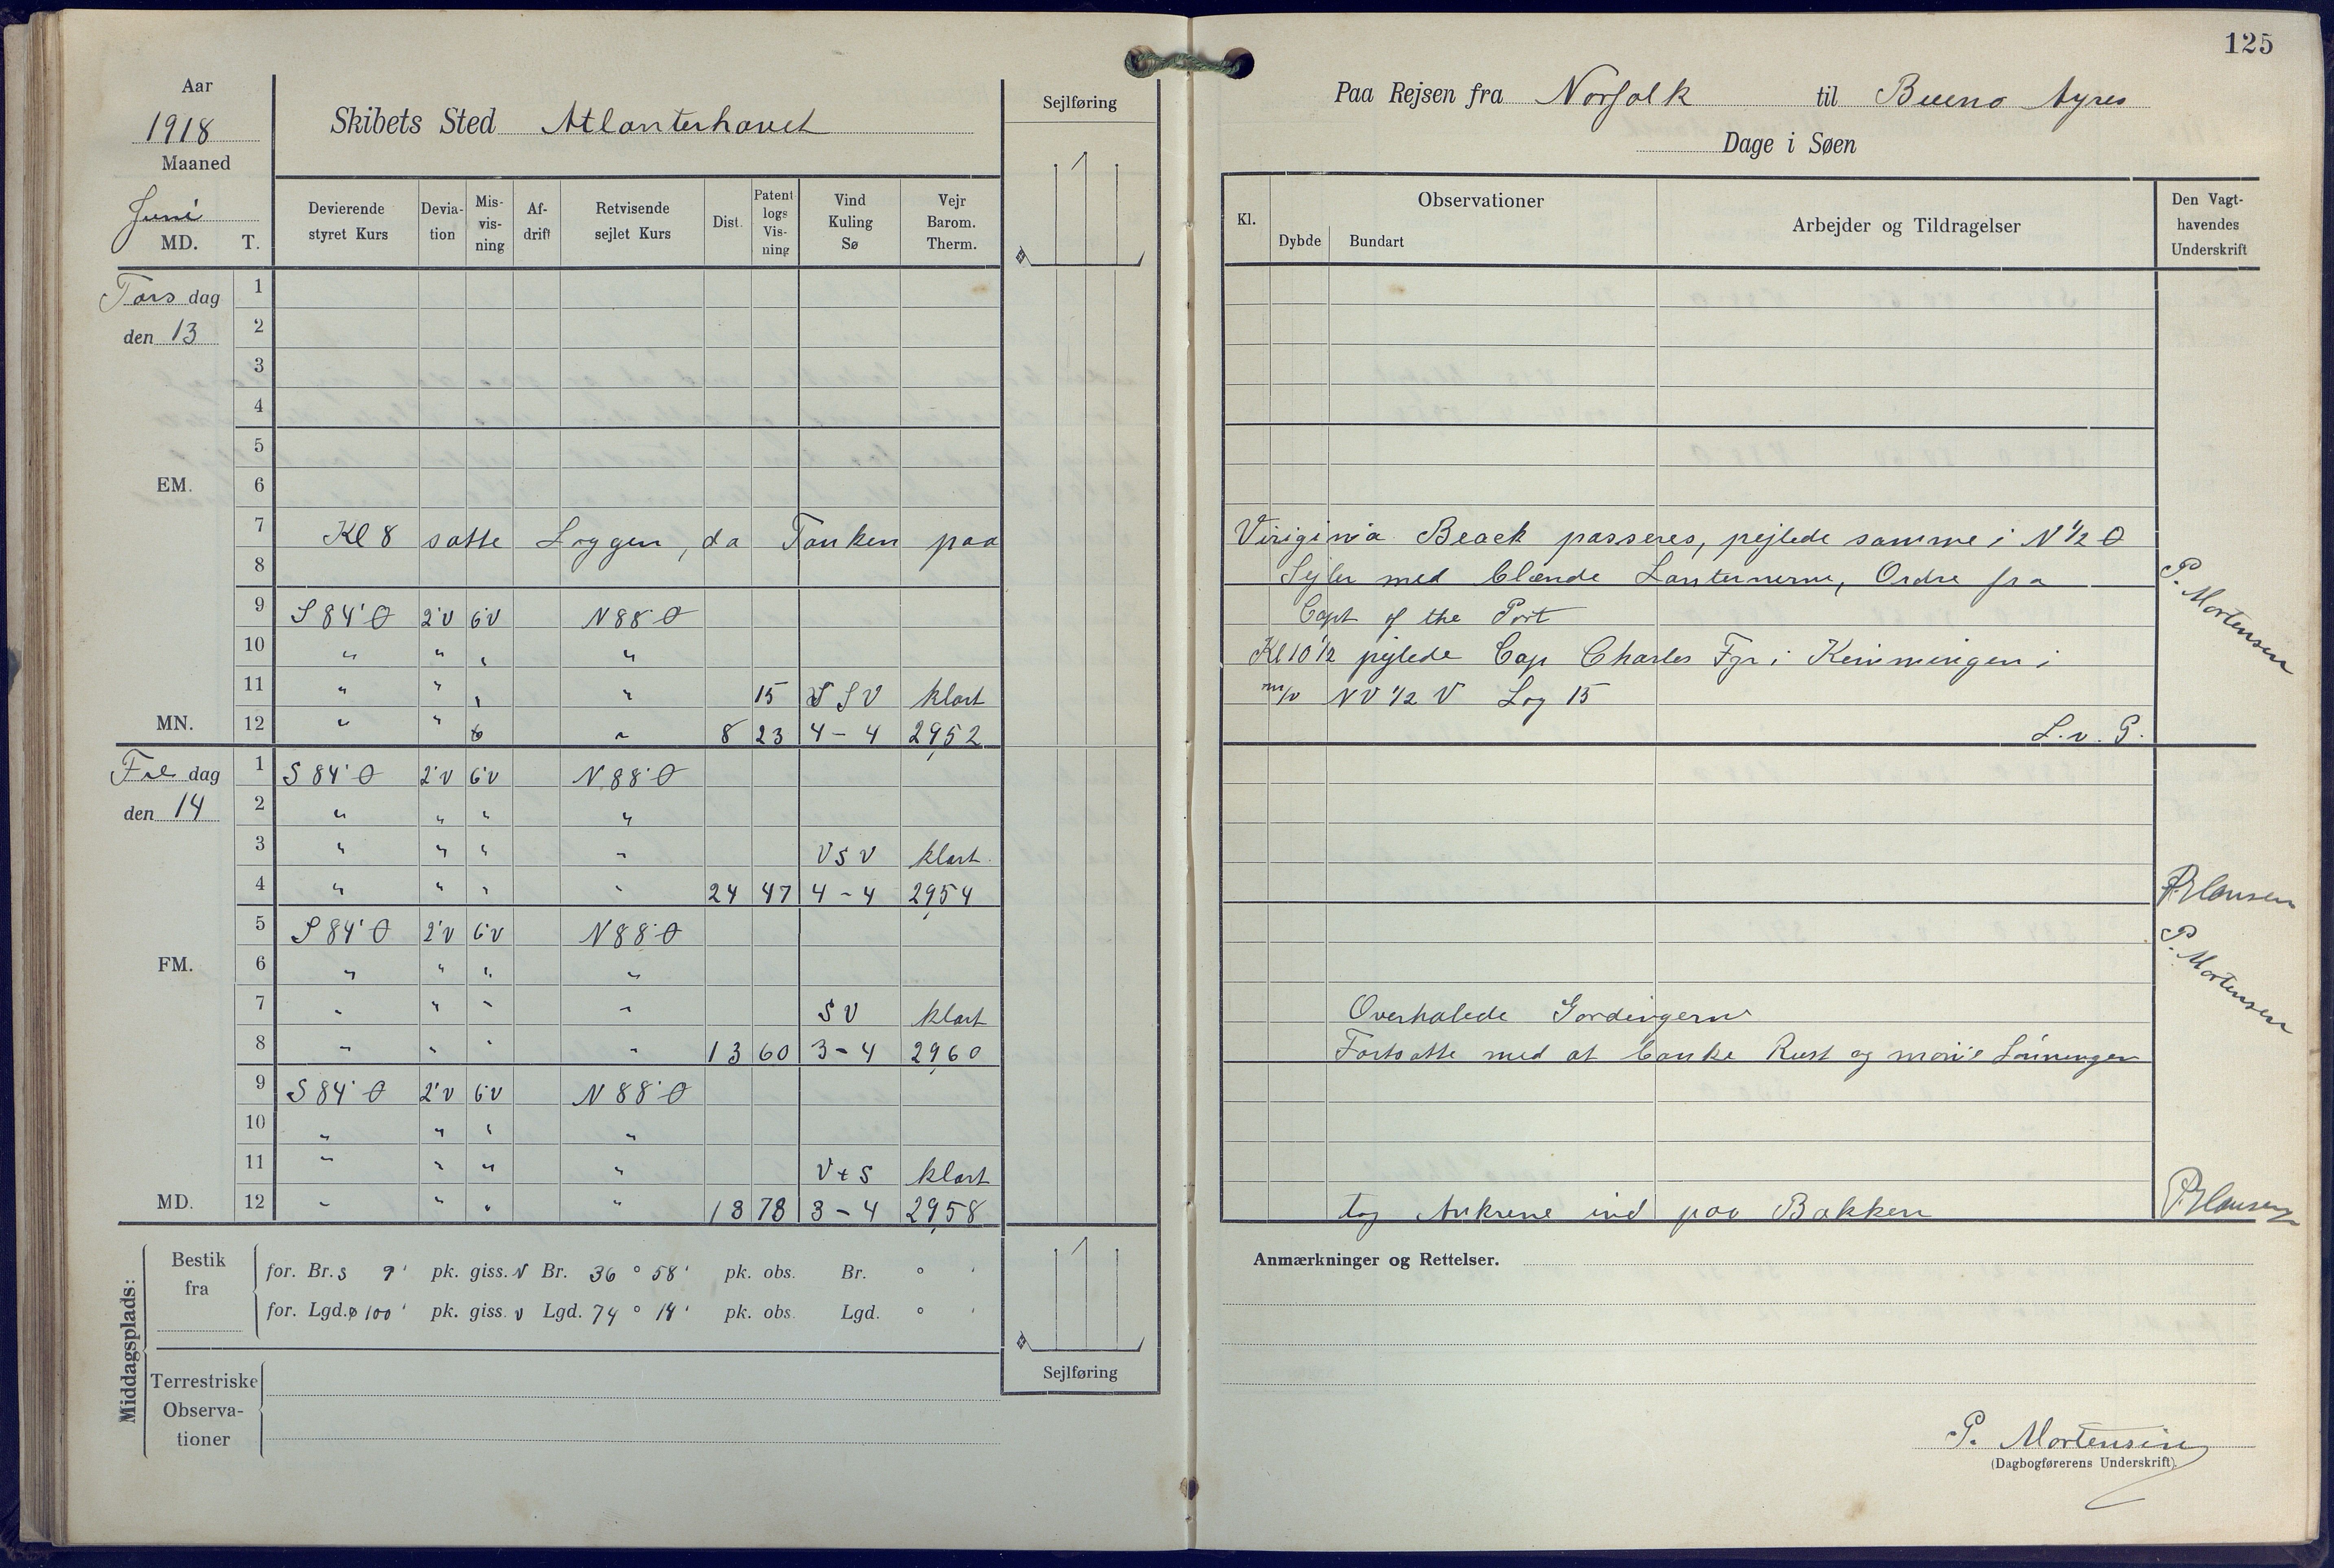 Aar
1918
Maaned
Juni
MD. T.
Skibets Sted Atlanterhavet
Sejlføring
Devierende styret Kurs
Devia-tion
Mis-vis-ning
Af-drift
Retvisende sejlet Kurs
Dist.
Patent logs Vis-ning
Vind Kuling Sø
Vejr Barom. Therm.
Torsdag 1
den 13 2
3
4
5
EM. 6
7 Kl 8 satte Loggen, da Tanken paa
8
9 S 84° Ø 2°V 6°V N 88° Ø
10 " " " "
11 " " " " 15 SSV klart
MN. 12 " " " " 8 23 4-4 29,52
Fredag 1 S 84° Ø 2°V 6°V N 88° Ø
den 14 2 " " " "
3 " " " " VSV klart
4 " " " " 24 47 4-4 29,54
5 S 84° Ø 2°V 6°V N 88° Ø
FM. 6 " " " "
7 " " " " SV klart
8 " " " " 13 60 3-4 29,60
9 S 84° Ø 2°V 6°V N 88° Ø
10 " " " "
11 " " " " V t S klart
MD. 12 " " " " 18 78 3-4 29,58
Middagsplads:
Bestik fra
for. Br. S 9' pk. giss. N Br. 36° 58' pk. obs. Br. ° '
for. Lgd. Ø 100' pk. giss. V Lgd. 74° 14' pk. obs. Lgd. ° '
Terrestriske Observa-tioner
Sejlføring
125
Paa Rejsen fra Norfolk til Bueno Ayres
Dage i Søen
Kl.
Observationer
Dybde Bundart
Arbejder og Tildragelser
Den Vagt-havendes Underskrift
Viriginia Beack passeres, pejlede samme i N ½ Ø
Sejler med blænde Lanternerne, Ordre fra
Capt of the Port
P. Mortensen
Kl 10 ½ pejlede Cap Charles Fyr i Kimmingen i
m/v NV ½ V Log 15
L. v. P.
P Hansen
P. Mortensen
Overhalede Gordingerne
Fortsatte med at banke Rust og mønie Lønningen
tog Ankrene ind paa Bakken
P Hansen
Anmærkninger og Rettelser.
P. Mortensen
(Dagbogførerens Underskrift).